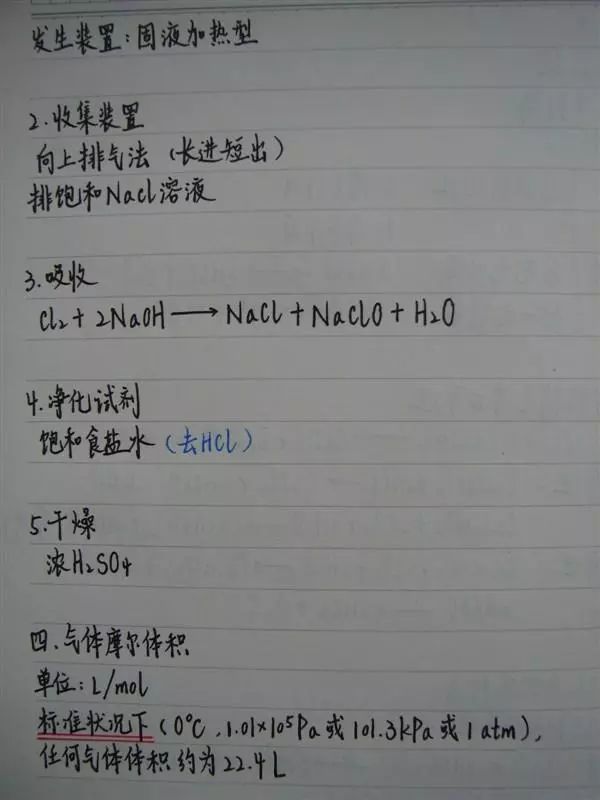 发生装置:固液加热型
2.收集装置
向上排气法(长进短出)
排饱和NaCl溶液
3.吸收
Cl₂+2NaOH⟶NaCl+NaClO+H₂O
4.净化试剂
饱和食盐水(去HCl)
5.干燥
浓H₂SO₄
四.气体摩尔体积
单位:L/mol
标准状况下(0℃,1.01×10⁵Pa或101.3kPa或1atm),
任何气体体积约为22.4L